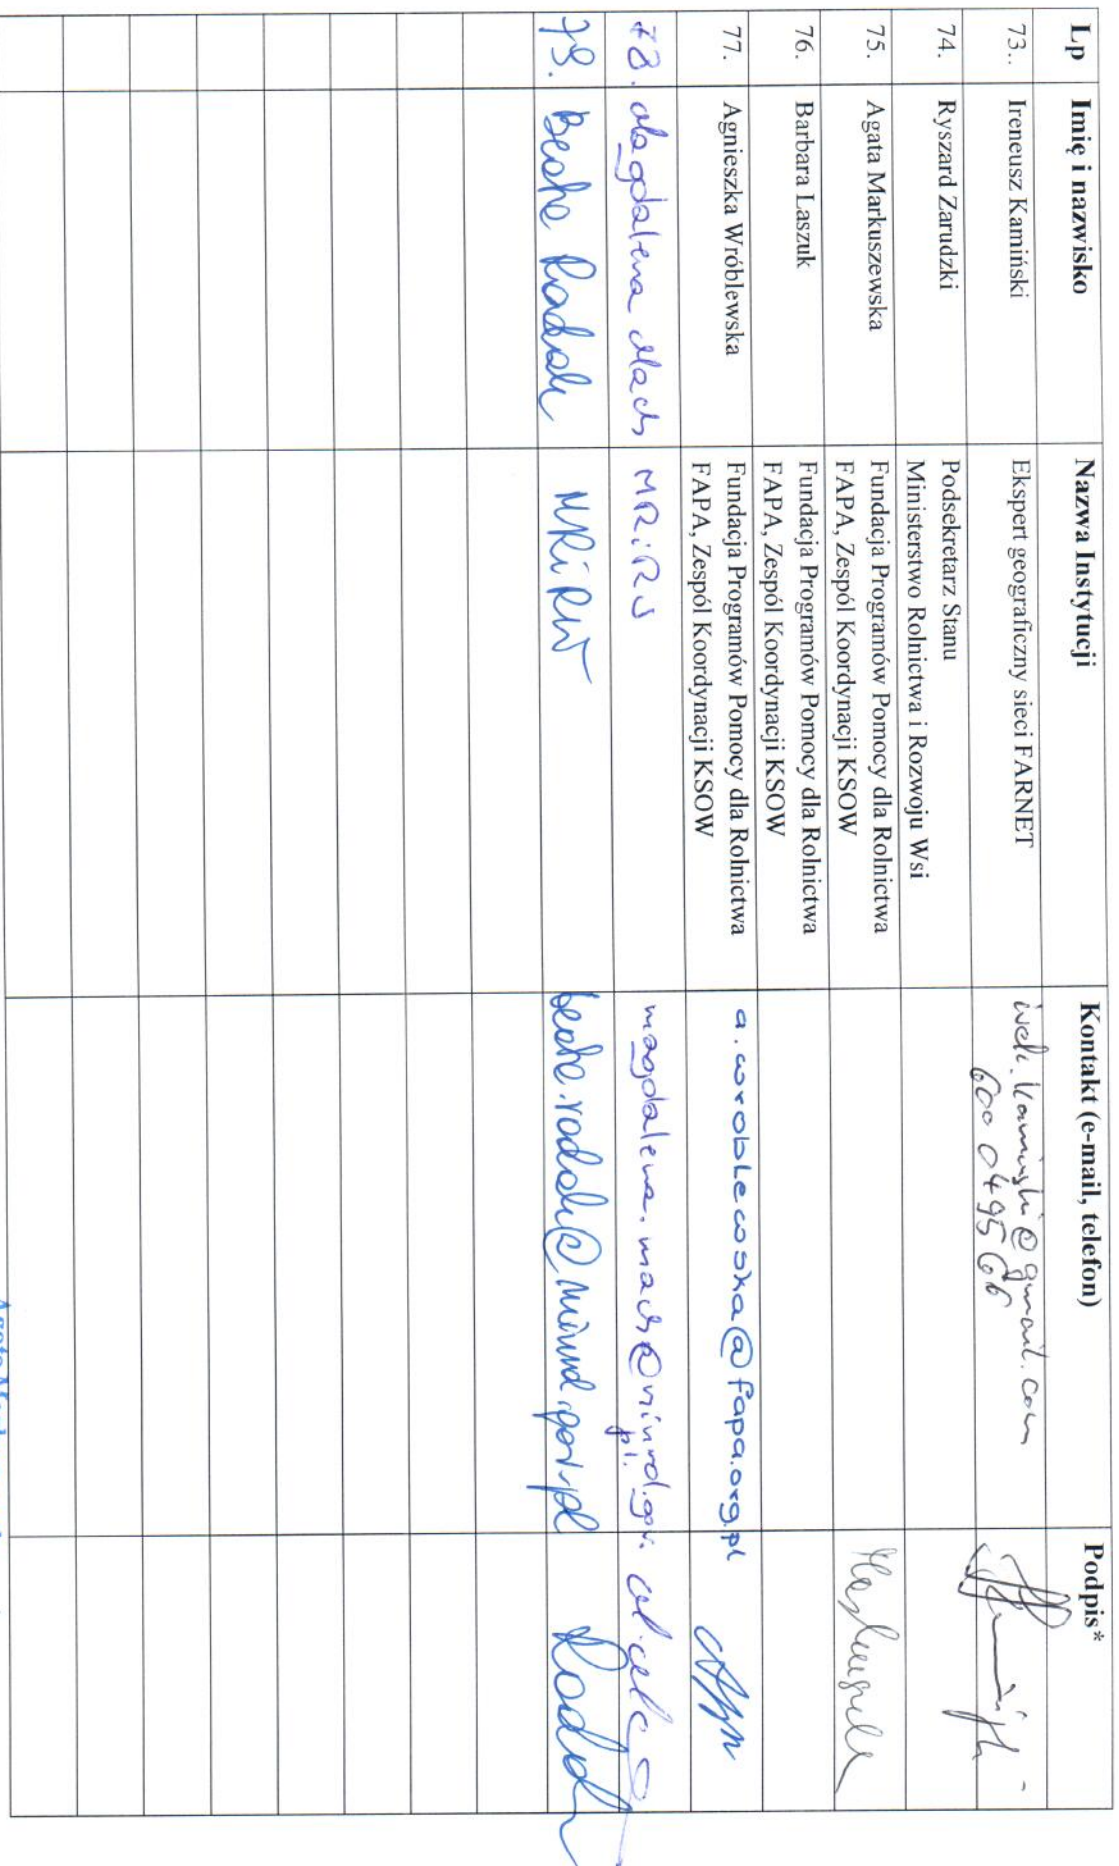 Lp Imię i nazwisko Nazwa Instytucji Kontakt (e-mail, telefon) Podpis*
73.. Ireneusz Kamiński Ekspert geograficzny sieci FARNET irek.kaminski@gmail.com
600 0495 66
74. Ryszard Zarudzki Podsekretarz Stanu
Ministerstwo Rolnictwa i Rozwoju Wsi
75. Agata Markuszewska Fundacja Programów Pomocy dla Rolnictwa
FAPA, Zespół Koordynacji KSOW
76. Barbara Laszuk Fundacja Programów Pomocy dla Rolnictwa
FAPA, Zespół Koordynacji KSOW
77. Agnieszka Wróblewska Fundacja Programów Pomocy dla Rolnictwa a.wroblewska@fapa.org.pl
FAPA, Zespół Koordynacji KSOW
78. Magdalena Mach MRiRW magdalena.mach@minrol.gov.
pl.
79. Beata Rodak MRiRW beata.rodak@minrol.gov.pl